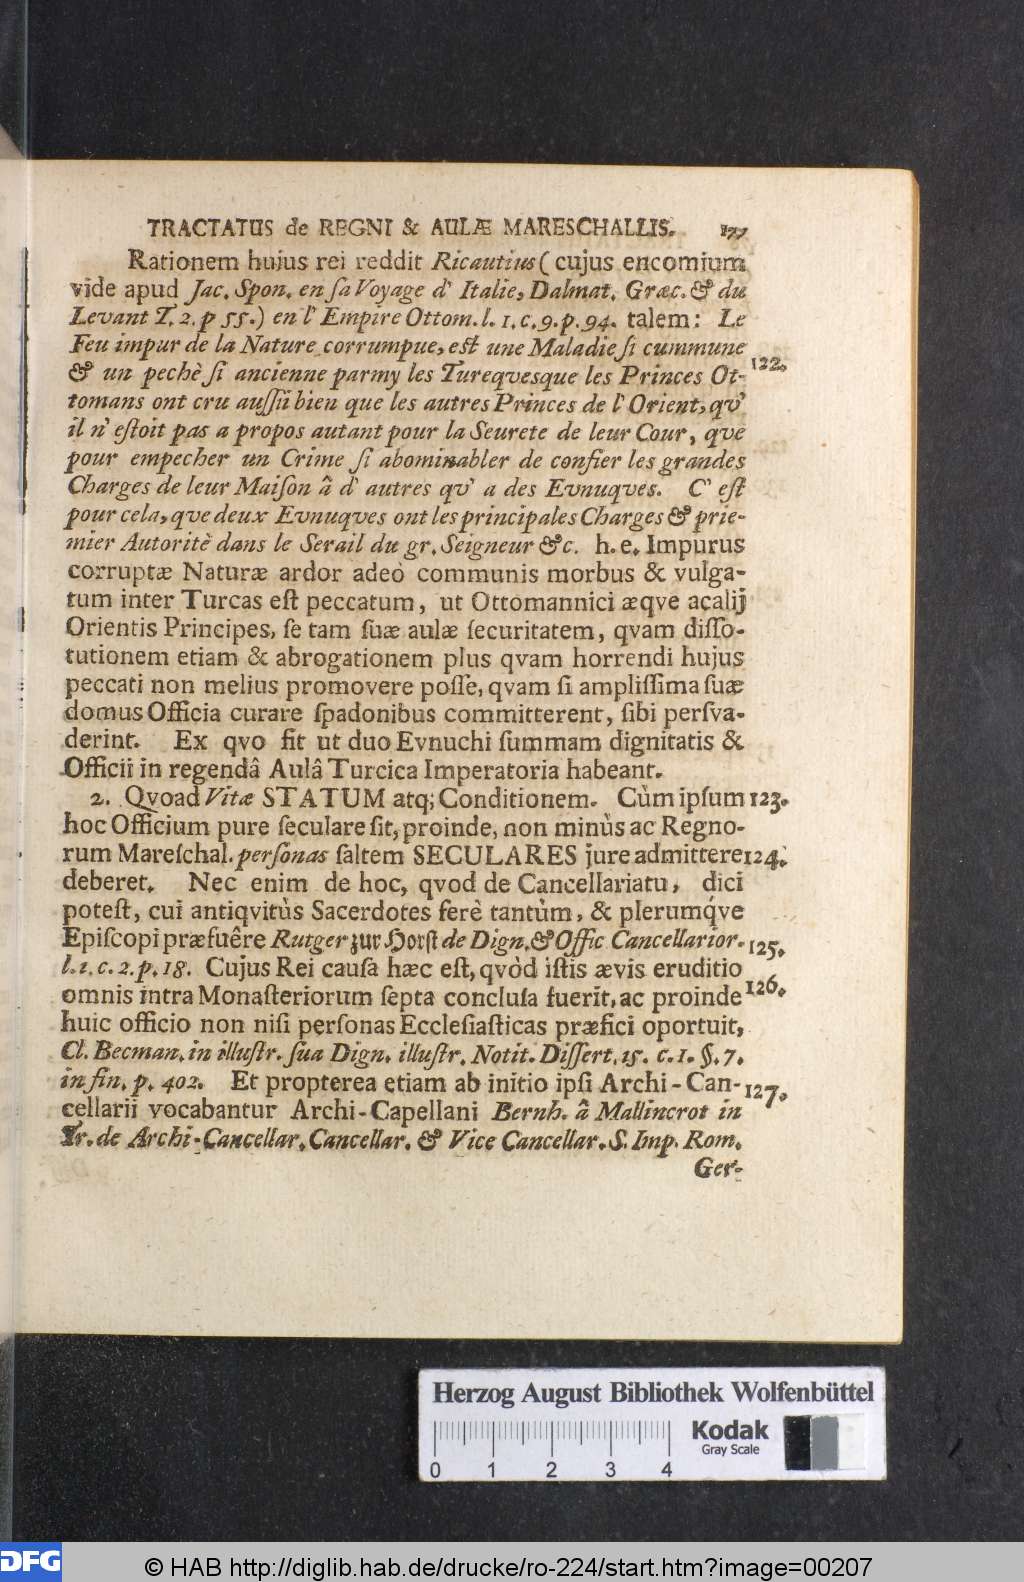 TRACTATUS de REGNI & AULÆ MARESCHALLIS. 177
Rationem hujus rei reddit Ricautius (cujus encomium
vide apud Jac. Spon. en ſa Voyage d' Italie, Dalmat. Græc. & du
Levant T. 2. p 55.) en l' Empire Ottom. l. 1. c. 9. p. 94. talem: Le
Feu impur de la Nature corrumpue, eſt une Maladie ſi cummune
& un pechè ſi ancienne parmy les Tureqvesque les Princes Ot- 122.
tomans ont cru auſſii bien que les autres Princes de l' Orient, qv'
il n' eſtoit pas a propos autant pour la Seurete de leur Cour, que
pour empecher un Crime ſi abominabler de confier les grandes
Charges de leur Maiſon â d' autres qv' a des Evnuqves. C' eſt
pour cela, que deux Evnuqves ont les principales Charges & prie-
mier Autoritè dans le Serail du gr. Seigneur &c. h. e. Impurus
corruptæ Naturæ ardor adeò communis morbus & vulga-
tum inter Turcas eſt peccatum, ut Ottomannici æqve acalij
Orientis Principes, ſe tam ſuæ aulæ ſecuritatem, qvam diſſo-
tutionem etiam & abrogationem plus qvam horrendi hujus
peccati non melius promovere poſſe, qvam ſi ampliſſima ſuæ
domus Officia curare ſpadonibus committerent, ſibi perſva-
derint. Ex qvo fit ut duo Evnuchi ſummam dignitatis &
Officii in regendâ Aulâ Turcica Imperatoria habeant.
2. Qvoad Vitæ STATUM atq; Conditionem. Cùm ipſum 123.
hoc Officium pure ſeculare ſit, proinde, non minùs ac Regno-
rum Mareſchal. perſonas ſaltem SECULARES jure admittere 124.
deberet. Nec enim de hoc, qvod de Cancellariatu, dici
poteſt, cui antiqvitùs Sacerdotes ferè tantùm, & plerumq́ve
Epiſcopi præfuêre Rutger zur Horſt de Dign. & Offic Cancellarior. 125.
l. 1. c. 2. p. 18. Cujus Rei cauſa hæc eſt, qvòd iſtis ævis eruditio
omnis intra Monaſteriorum ſepta concluſa fuerit, ac proinde 126.
huic officio non niſi perſonas Eccleſiaſticas præfici oportuit,
Cl. Becman. in illuſtr. ſua Dign. illuſtr. Notit. Diſſert. 15. c. 1. §. 7.
in fin. p. 402. Et propterea etiam ab initio ipſi Archi-Can- 127.
cellarii vocabantur Archi-Capellani Bernh. â Mallincrot in
Tr. de Archi-Cancellar. Cancellar. & Vice Cancellar. S. Imp. Rom.
Ger-
Herzog August Bibliothek Wolfenbüttel
Kodak
Gray Scale
0 1 2 3 4
DFG
© HAB http://diglib.hab.de/drucke/ro-224/start.htm?image=00207